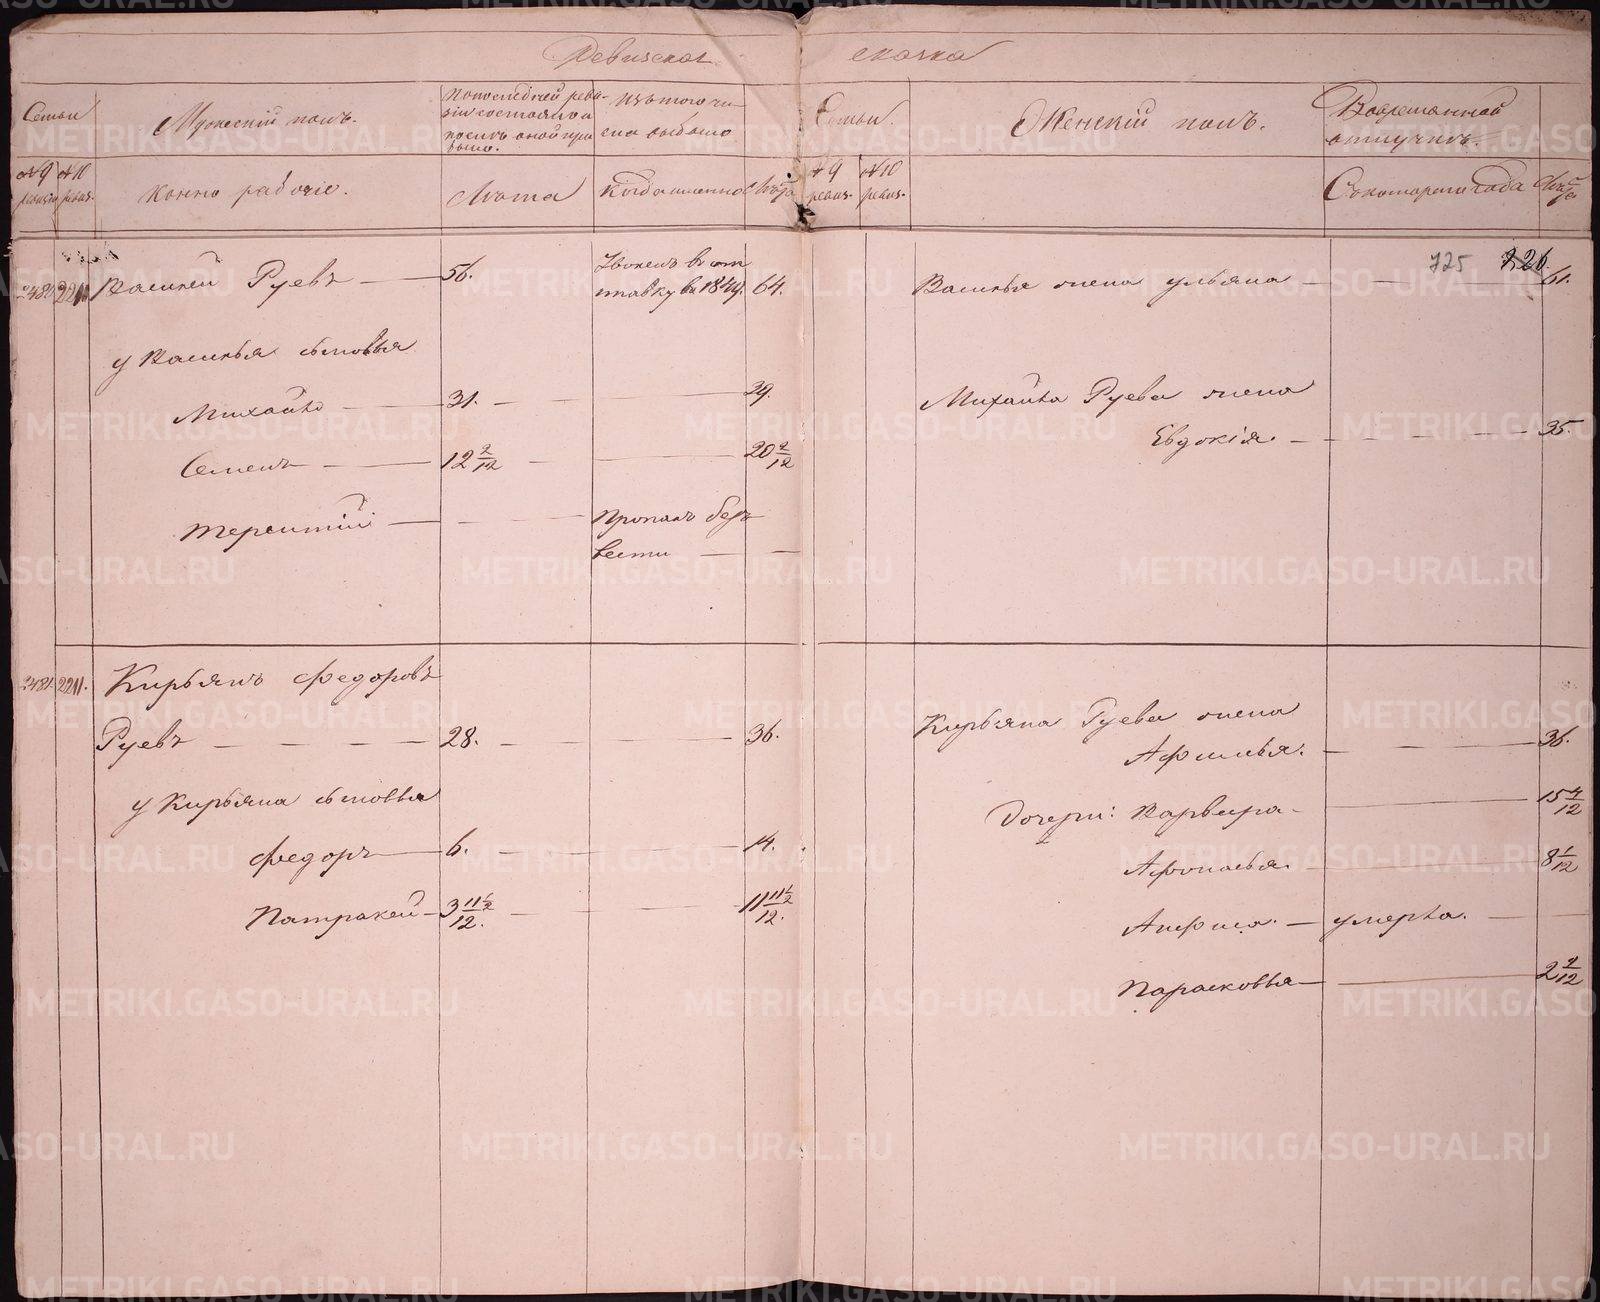 Ревизская сказка
Семьи
Мужескій полъ.
По последней реви-
зіи состояло и
после оной при
было.
Изъ того чи
сла выбыло
Семьи.
Женскій полъ.
Во временной
отлучкѣ.
№ 9 ревизіи
№ 10 ревиз.
конно рабочіе.
Лѣта
Когда именно
Лѣта
№ 9 ревиз.
№ 10 ревиз.
Съ котораго года
Лѣта
725 226.
2210 Василей Руевъ — 56.
Уволенъ въ от
ставку въ 1849. 64.
Василья жена Ульяна — 61.
у Василья сыновья
Михайло — 31. — 39.
Михайла Руева жена
Евдокія. — 35.
Семенъ — 12 2/12 — 20 2/12
Терентій — Пропалъ безъ
вести —
2481 2211. Кирьянъ Федоровъ
Руевъ — 28. — 36.
Кирьяна Руева жена
Афимья. — 36.
у Кирьяна сыновья
Дочери: Варвара — 15 4/12
Федоръ — 6. — 14.
Афонасья. 8 1/12
Патракей — 3 11½/12. — 11 11½/12.
Анфиса. — умерла. —
Парасковья — 2 2/12
METRIKI.GASO-URAL.RU